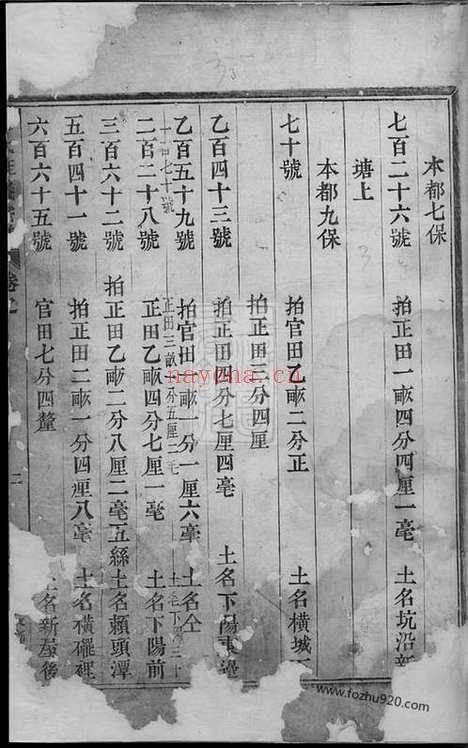 本都七保
七百二十六號 拍正田一畝四分四厘一毫 土名坑沿新
塘上
本都九保
七十號 拍官田乙畝二分正 土名橫城
拍正田三分四厘
乙百四十三號 拍正田四分七厘四毫 土名下陽
乙百五十九號 拍官田一分一厘六毫 土名仝
七十號 正田三畝 分五厘二毛 土名下
二百二十八號 正田乙畝四分七厘一毫 土名下陽前
三百六十二號 拍正田乙畝二分八厘二毫五絲 土名賴頭潭
五百四十一號 拍正田二畝一分四厘八毫 土名橫擺裡
六百六十五號 官田七分四釐 土名新屋後
naycha.cn
www.fozhu920.com